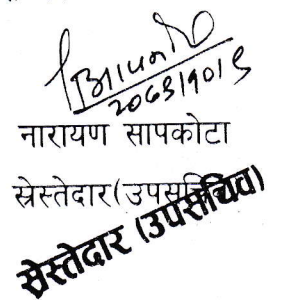 2063/90/9
नारायण सापकोटा
स्रेस्तेदार(उपसचिव)
स्रेस्तेदार (उपसचिव)